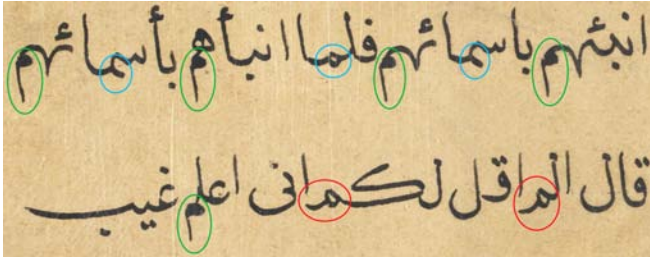 انبئهم بأسمائهم فلما انبأهم بأسمائهم
قال الم اقل لكم انى اعلم غيب